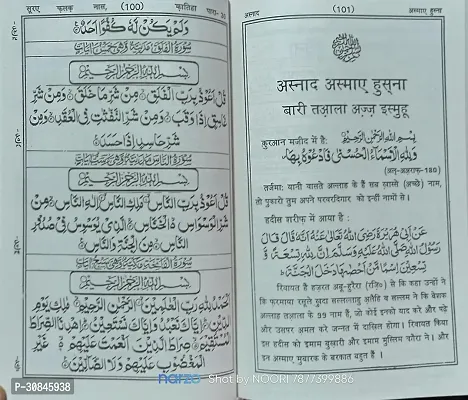 सूरए फ़लक़ नास, (100) फ़ातिहा पारा- 30
وَلَمْ يَكُنْ لَّهٗ كُفُوًا اَحَدٌ
سُوْرَةُ الْفَلَقِ مَدَنِيَّةٌ وَهِيَ خَمْسُ اٰيَاتٍ
بِسْمِ اللهِ الرَّحْمٰنِ الرَّحِيْمِ
قُلْ اَعُوْذُ بِرَبِّ الْفَلَقِ مِنْ شَرِّ مَا خَلَقَ وَمِنْ شَرِّ
غَاسِقٍ اِذَا وَقَبَ وَمِنْ شَرِّ النَّفّٰثٰتِ فِي الْعُقَدِ وَمِنْ
شَرِّ حَاسِدٍ اِذَا حَسَدَ
سُوْرَةُ النَّاسِ مَدَنِيَّةٌ وَهِيَ سِتُّ اٰيَاتٍ
بِسْمِ اللهِ الرَّحْمٰنِ الرَّحِيْمِ
قُلْ اَعُوْذُ بِرَبِّ النَّاسِ مَلِكِ النَّاسِ اِلٰهِ النَّاسِ مِنْ
شَرِّ الْوَسْوَاسِ الْخَنَّاسِ الَّذِيْ يُوَسْوِسُ فِيْ صُدُوْرِ
النَّاسِ مِنَ الْجِنَّةِ وَالنَّاسِ
بِسْمِ اللهِ الرَّحْمٰنِ الرَّحِيْمِ
اَلْحَمْدُ لِلّٰهِ رَبِّ الْعٰلَمِيْنَ الرَّحْمٰنِ الرَّحِيْمِ مٰلِكِ يَوْمِ
الدِّيْنِ اِيَّاكَ نَعْبُدُ وَاِيَّاكَ نَسْتَعِيْنُ اِهْدِنَا الصِّرَاطَ
الْمُسْتَقِيْمَ صِرَاطَ الَّذِيْنَ اَنْعَمْتَ عَلَيْهِمْ غَيْرِ
الْمَغْضُوْبِ عَلَيْهِمْ وَلَا الضَّالِّيْنَ
अस्नाद (101) अस्माए हुस्ना
अस्नाद अस्माए हुस्ना
बारी तआला अज़्ज़ इस्मुहू
कुरआन मजीद में है: بِسْمِ اللهِ الرَّحْمٰنِ الرَّحِيْمِ
وَلِلّٰهِ الْاَسْمَاءُ الْحُسْنٰى فَادْعُوْهُ بِهَا
(अल्-अअ़राफ़-180)
तर्जमाः यानी वासते अल्लाह के हैं सब (ख़ासे) (अच्छे) नाम,
तो पुकारो तुम अपने परवरदिगार को इन्हीं नामों से।
हदीस शरीफ में आया है :
عَنْ اَبِيْ هُرَيْرَةَ رَضِيَ اللهُ تَعَالٰى عَنْهُ اَنَّهٗ قَالَ قَالَ
رَسُوْلُ اللهِ صَلَّى اللهُ عَلَيْهِ وَسَلَّمَ اِنَّ لِلّٰهِ تِسْعَةً وَّ
تِسْعِيْنَ اِسْمًا مَنْ اَحْصٰهَا دَخَلَ الْجَنَّةَ
रिवायत है हज़रत अबू-हुरैरा (रज़ि०) से कि कहा उन्होंने
कि फ़रमाया रसूले ख़ुदा सल्लल्लाहु अलैहि व सल्लम ने कि बेशक
अल्लाह तआला के 99 नाम हैं, जो कोई इनको याद करे और पढ़े
और उसपर अमल करे जन्नत में दाख़िल होगा। रिवायत किया
इस हदीस को इमाम बुख़ारी और इमाम मुस्लिम वग़ैरा ने। और
इन अस्माए मुबारक के बरकात बहुत हैं ।
narzo Shot by NOORI 7877399886
P-30845938